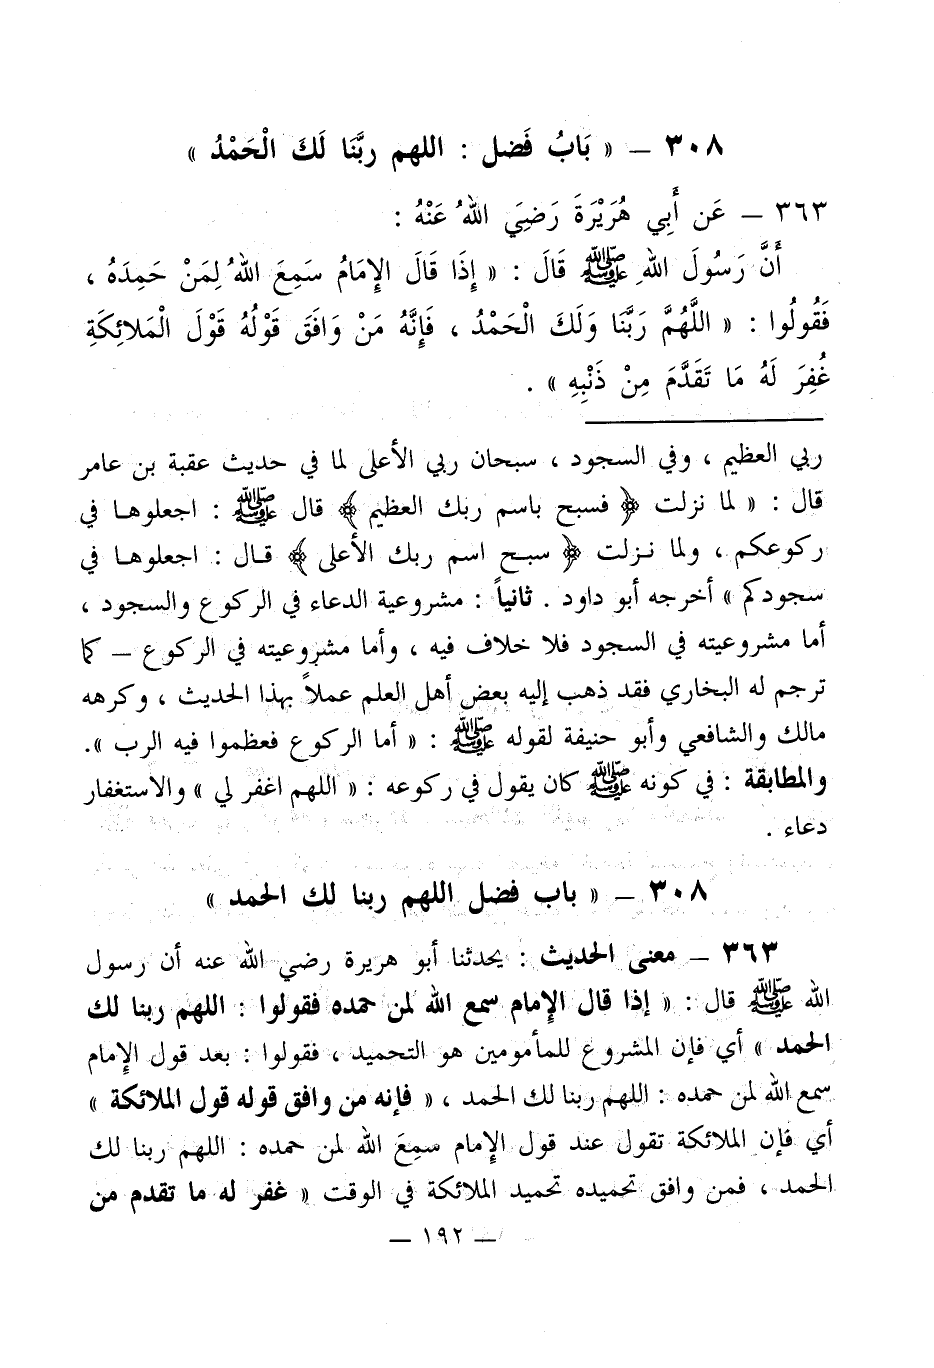 ٣٠٨ – « بَابُ فَضل : اللهم ربَّنَا لَكَ الْحَمْدُ »
٣٦٣ – عَن أَبِي هُرَيْرَةَ رَضِيَ اللهُ عَنْهُ :
أَنَّ رَسُولَ اللهِ ﷺ قَالَ : « إِذَا قَالَ الإِمَامُ سَمِعَ اللهُ لِمَنْ حَمِدَهُ ،
فَقُولُوا : « اللَّهُمَّ رَبَّنَا وَلَكَ الْحَمْدُ ، فَإِنَّهُ مَنْ وَافَقَ قَوْلُهُ قَوْلَ الْمَلائِكَةِ
غُفِرَ لَهُ مَا تَقَدَّمَ مِنْ ذَنْبِهِ » .
ربي العظيم ، وفي السجود ، سبحان ربي الأعلى لما في حديث عقبة بن عامر
قال : « لما نزلت ﴿ فسبح باسم ربك العظيم ﴾ قال ﷺ : اجعلوهـا في
ركوعكم ، ولما نـزلت ﴿ سبـح اسم ربك الأعلى ﴾ قـال : اجعلوهـا في
سجودكم » أخرجه أبو داود . ثانياً : مشروعية الدعاء في الركوع والسجود ،
أما مشروعيته في السجود فلا خلاف فيه ، وأما مشروعيته في الركوع – كما
ترجم له البخاري فقد ذهب إليه بعض أهل العلم عملاً بهذا الحديث ، وكرهه
مالك والشافعي وأبو حنيفة لقوله ﷺ : « أما الركوع فعظموا فيه الرب ».
والمطابقة : في كونه ﷺ كان يقول في ركوعه : « اللهم اغفر لي » والاستغفار
دعاء .
٣٠٨ – « باب فضل اللهم ربنا لك الحمد »
٣٦٣ – معنى الحديث : يحدثنا أبو هريرة رضي الله عنه أن رسول
الله ﷺ قال : « إذا قال الإمام سمع الله لمن حمده فقولوا : اللهم ربنا لك
الحمد » أي فإن المشروع للمأمومين هو التحميد ، فقولوا : بعد قول الإمام
سمع الله لمن حمده : اللهم ربنا لك الحمد ، « فإنه من وافق قوله قول الملائكة »
أي فإن الملائكة تقول عند قول الإمام سمِعَ الله لمن حمده : اللهم ربنا لك
الحمد ، فمن وافق تحميده تحميد الملائكة في الوقت « غفر له ما تقدم من
– ١٩٢ –